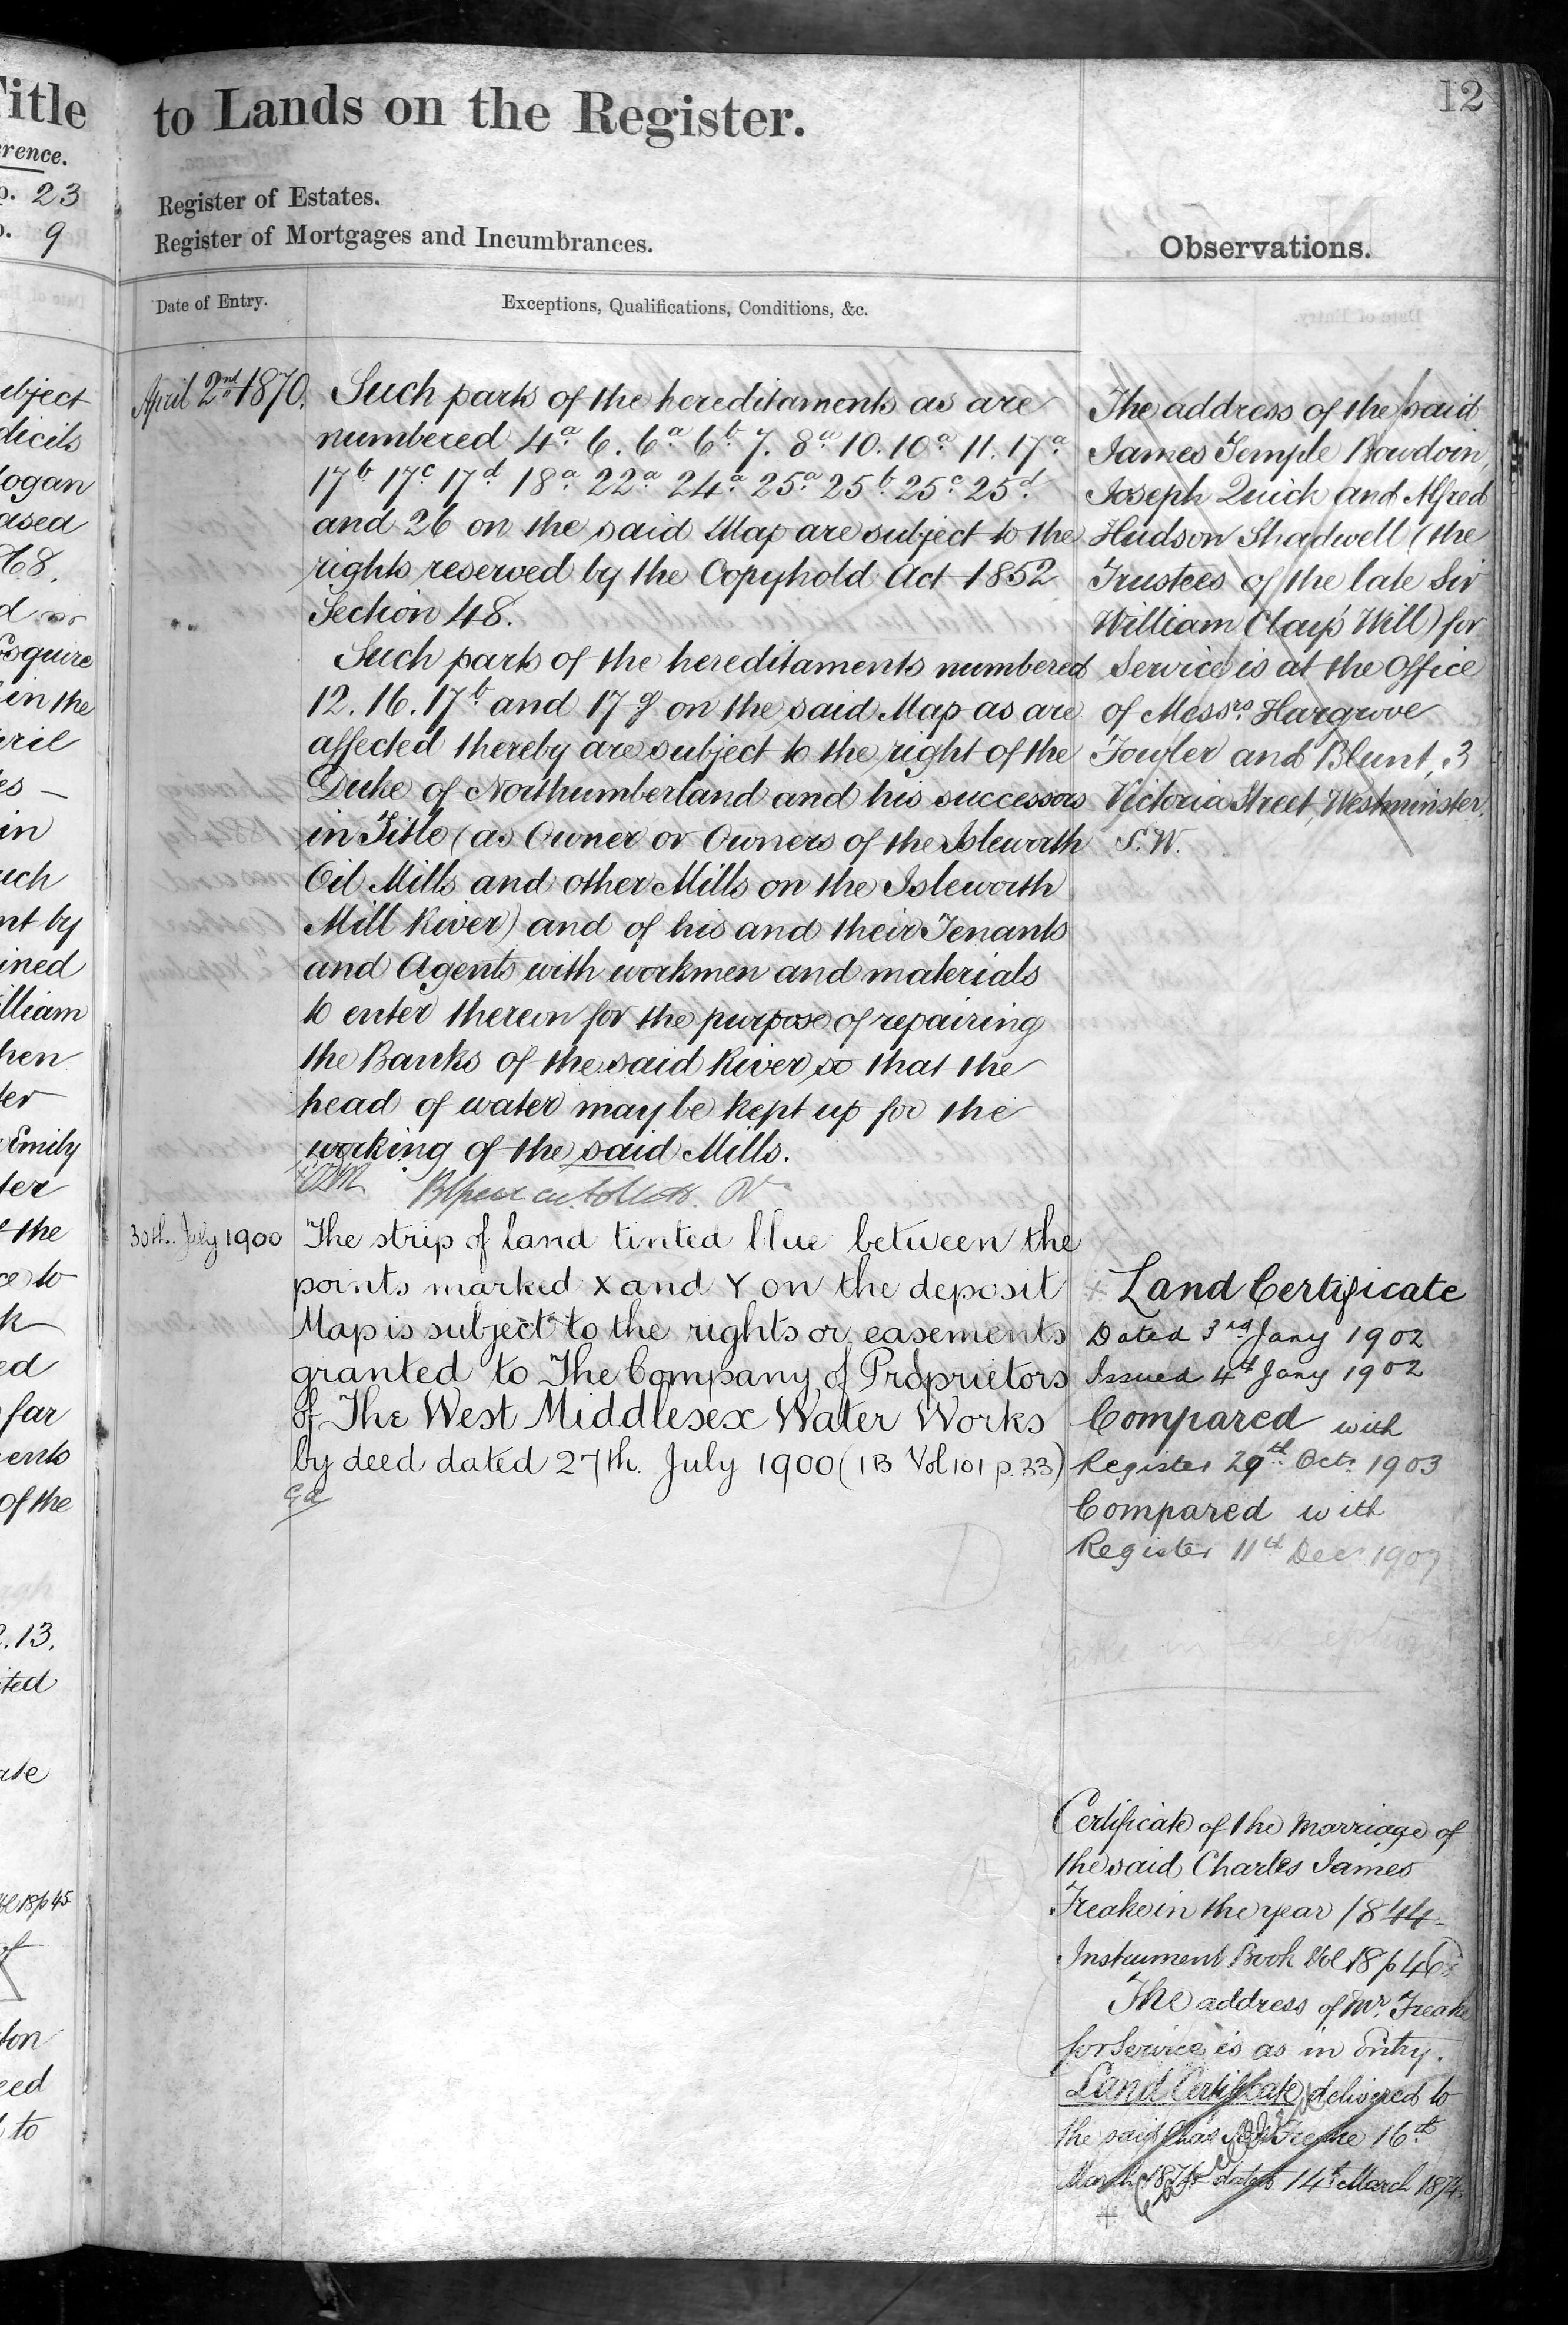 Title
rence.
p. 23
p. 9
ubject
dicils
logan
ased
d
Esquire
in the
ril
es —
in
uch
nt by
ined
illiam
hen
ter
Emily
ter
f the
ce to
k
ed
far
ents
of the
2.13.
ited
ate
Vol 18 p 45
of
ton
eed
to
to Lands on the Register.
12
Register of Estates.
Register of Mortgages and Incumbrances.
Observations.
Date of Entry.
Exceptions, Qualifications, Conditions, &c.
April 2nd 1870.
Such parts of the hereditaments as are
numbered 4a. 6. 6a 6b 7. 8a 10. 10a 11. 17a
17b 17c 17d 18a 22a 24a 25a 25b 25c 25d
and 26 on the said Map are subject to the
rights reserved by the Copyhold Act 1852
Section 48.
Such parts of the hereditaments numbered
12. 16. 17b and 17g on the said Map as are
affected thereby are subject to the right of the
Duke of Northumberland and his successors
in Title (as Owner or Owners of the Isleworth
Oil Mills and other Mills on the Isleworth
Mill River) and of his and their Tenants
and Agents with workmen and materials
to enter thereon for the purpose of repairing
the Banks of the said River so that the
head of water may be kept up for the
working of the said Mills.
30th. July 1900
The strip of land tinted blue between the
points marked X and Y on the deposit
Map is subject to the rights or easements
granted to The Company of Proprietors
of The West Middlesex Water Works
by deed dated 27th. July 1900 (1B Vol 101 p. 33)
The address of the said
James Temple Bowdoin,
Joseph Quick and Alfred
Hudson Shadwell (the
Trustees of the late Sir
William Clay's Will) for
Service is at the Office
of Messrs. Hargrove
Fowler and Blunt, 3
Victoria Street, Westminster,
S.W.
+ Land Certificate
Dated 3rd Jany 1902
Issued 4th Jany 1902
Compared with
Register 29th Octr. 1903
Compared with
Register 11th Decr 1907
D
Certificate of the Marriage of
the said Charles James
Freake in the year 1844
Instrument Book Vol 18 p 46
The address of Mr. Freake
for Service is as in Entry.
Land Certificate delivered to
the said Chas Jas Freake 16th
March 1874 dated 14th March 1874.
+